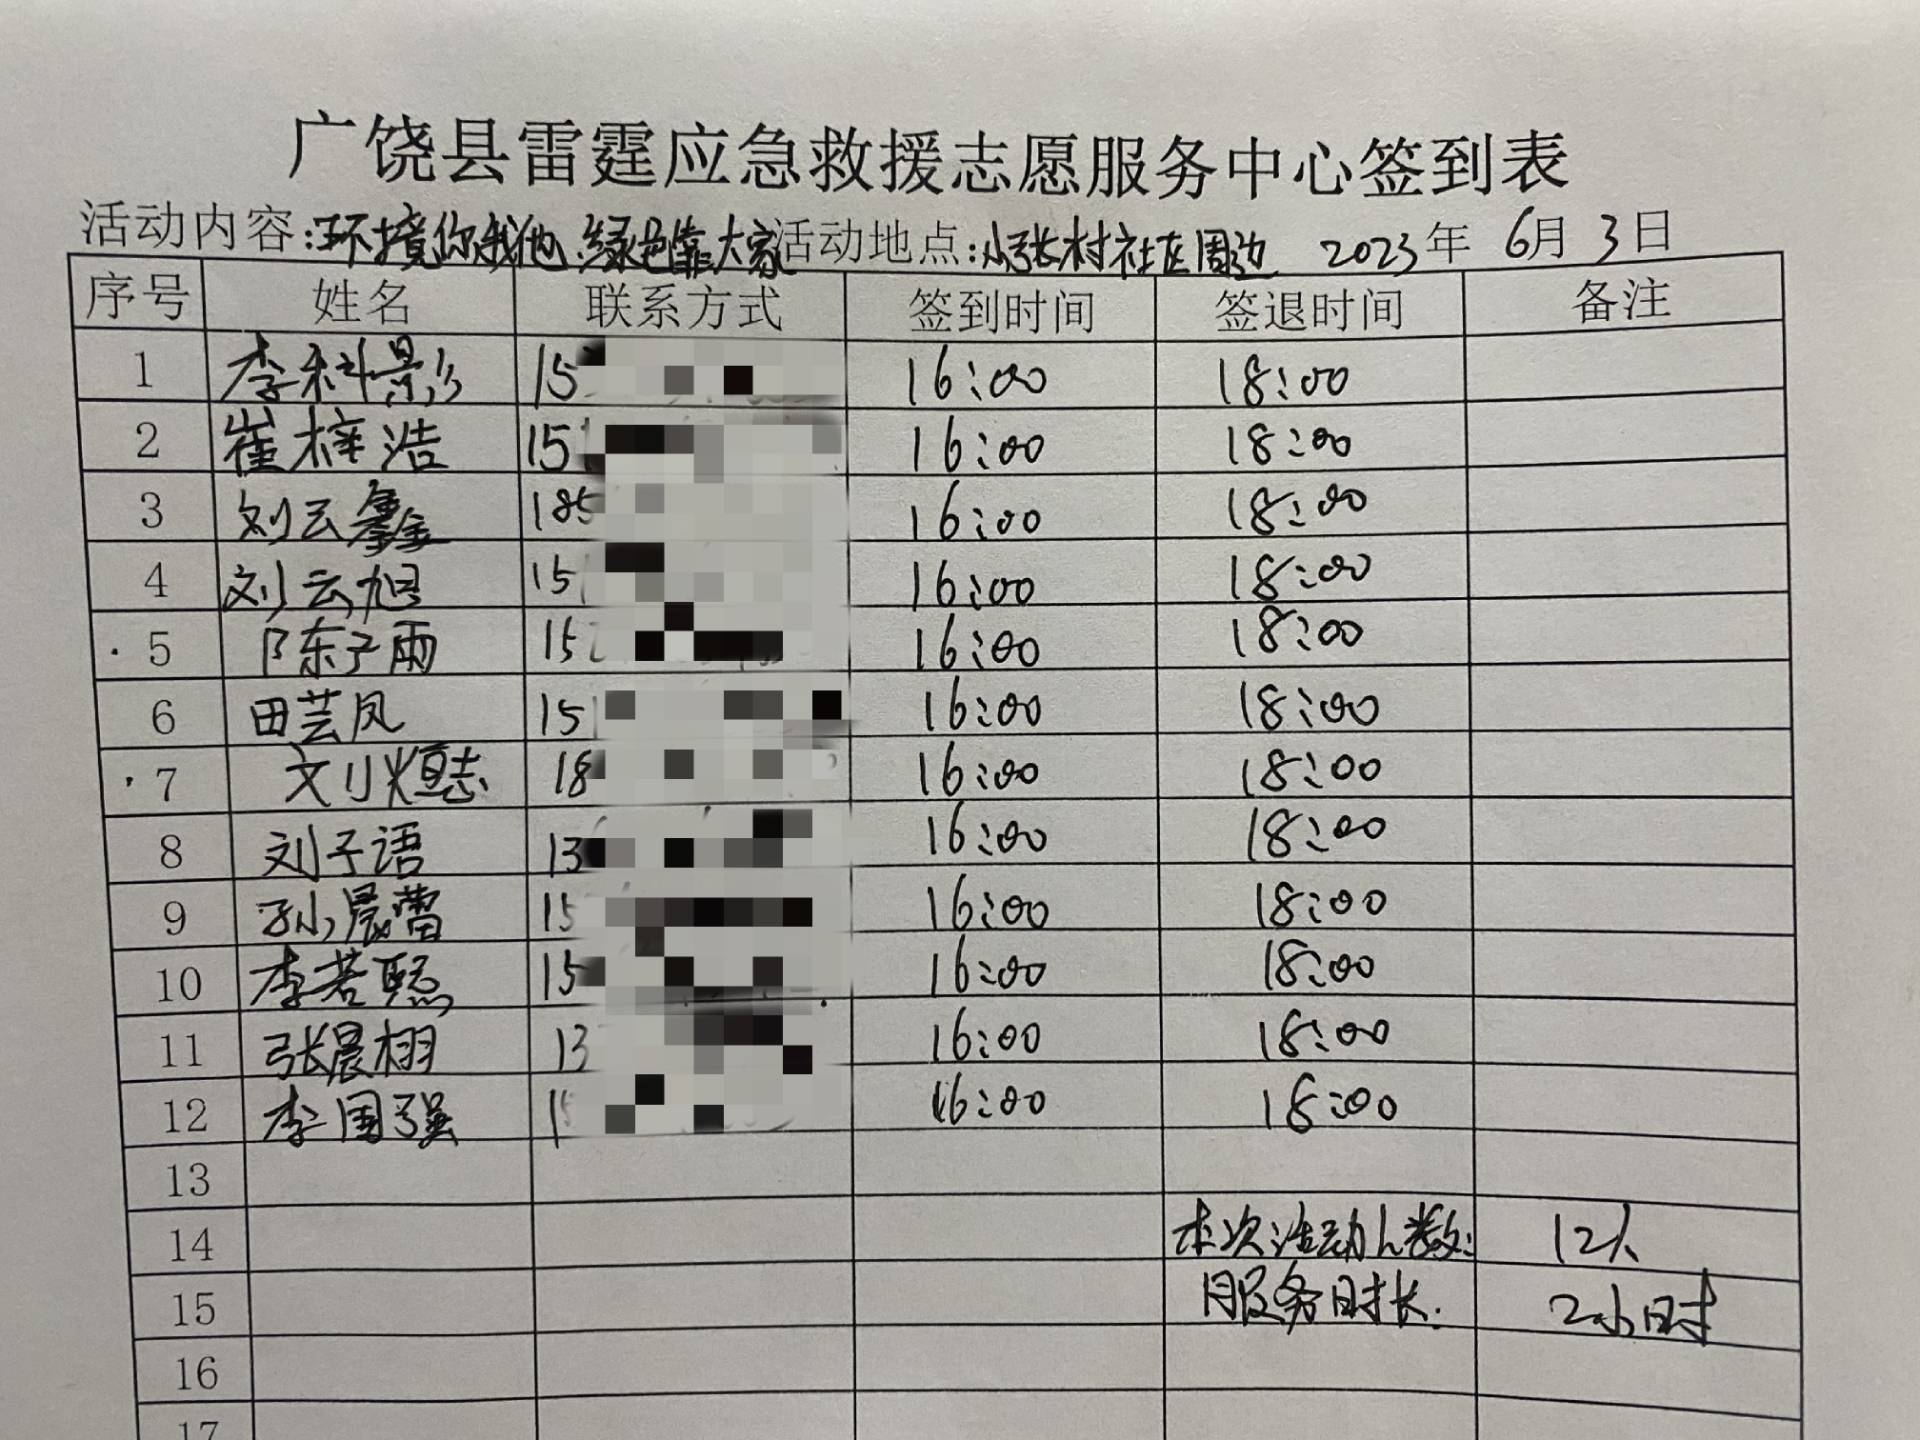 广饶县雷霆应急救援志愿服务中心签到表
活动内容:环境你我他、绿色靠大家 活动地点:小张村社区周边 2023年 6月 3日
序号 姓名 联系方式 签到时间 签退时间 备注
1 李科影 15 16:00 18:00
2 崔梓浩 151 16:00 18:00
3 刘云鑫 185 16:00 18:00
4 刘云旭 15 16:00 18:00
5 陈子雨 152 16:00 18:00
6 田芸凤 151 16:00 18:00
7 刘烜志 18 16:00 18:00
8 刘子语 13 16:00 18:00
9 孙晨蕾 15 16:00 18:00
10 李若聪 15 16:00 18:00
11 张晨栩 13 16:00 18:00
12 李国强 15 16:00 18:00
13
14 本次活动人数: 12人
15 服务时长: 2小时
16
17